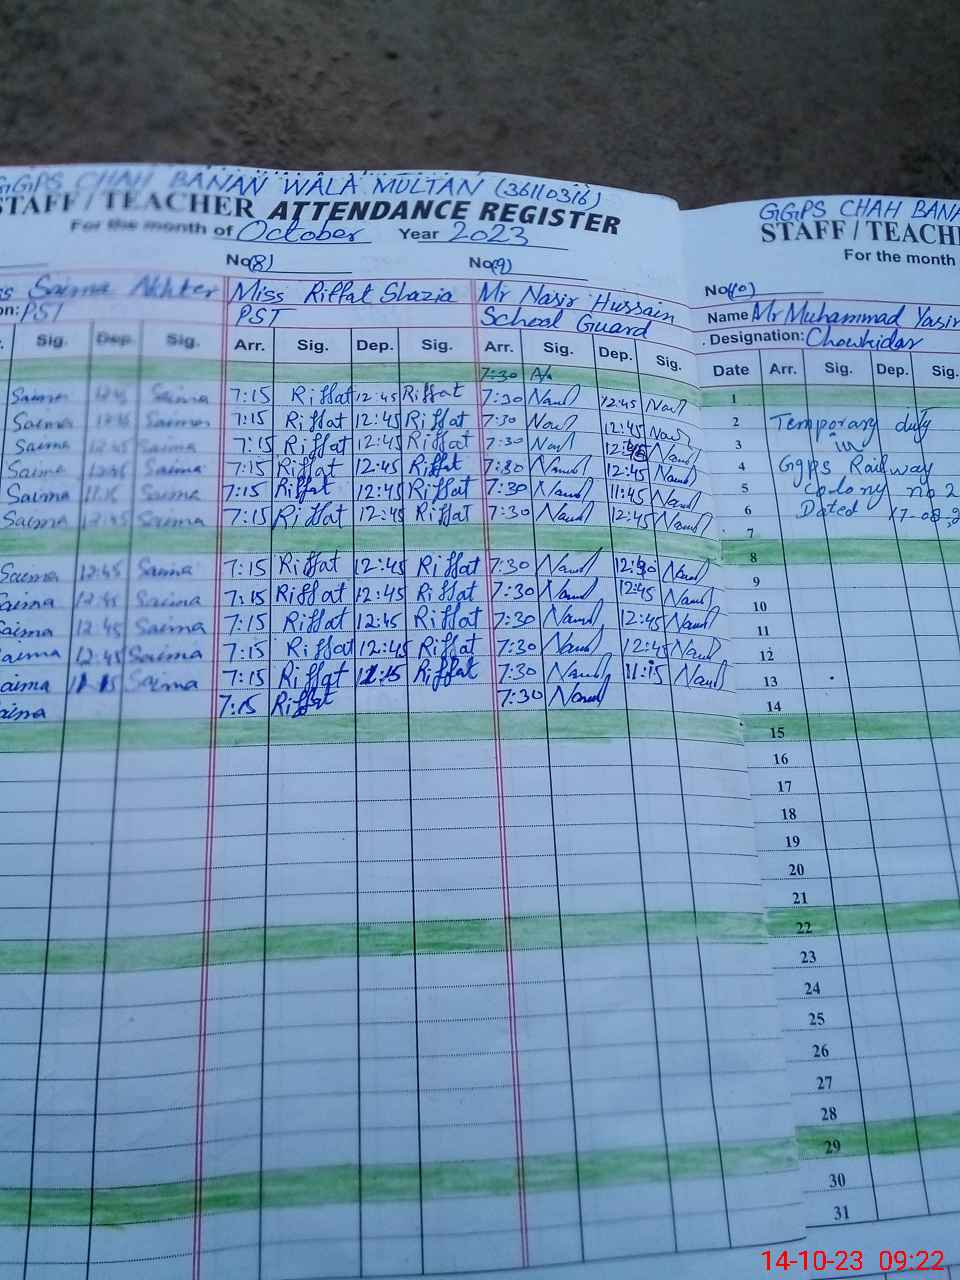 GGPS CHAH BANAN WALA MULTAN (36110316)
STAFF / TEACHER ATTENDANCE REGISTER
For the month of October Year 2023
No(8) No(9)
Saima Akhter Miss Riffat Shazia Mr Nasir Hussain
PST PST School Guard
Sig. Dep. Sig. Arr. Sig. Dep. Sig. Arr. Sig. Dep. Sig.
7:30
Saima 12:45 Saima 7:15 Riffat 12:45 Riffat 7:30 12:45
Saima 12:45 Saima 7:15 Riffat 12:45 Riffat 7:30 12:45
Saima 12:45 Saima 7:15 Riffat 12:45 Riffat 7:30 12:45
Saima 12:45 Saima 7:15 Riffat 12:45 Riffat 7:30 12:45
Saima 11:15 Saima 7:15 Riffat 12:45 Riffat 7:30 11:45
Saima 12:45 Saima 7:15 Riffat 12:45 Riffat 7:30 12:45
Saima 12:45 Saima 7:15 Riffat 12:45 Riffat 7:30
Saima 12:45 Saima 7:15 Riffat 12:45 Riffat 7:30 12:45
Saima 12:45 Saima 7:15 Riffat 12:45 Riffat 7:30 12:45
Saima 12:45 Saima 7:15 Riffat 12:45 Riffat 7:30 12:45
Saima 11:15 Saima 7:15 Riffat Riffat 7:30 11:15
Saima 7:15 Riffat 7:30
GGPS CHAH BANA
STAFF / TEACH
For the month
No(10)
Name Mr Muhammad Yasir
Designation: Chowkidar
Date Arr. Sig. Dep. Sig.
1
2 Temporary duty
3 in
4 Ggps Railway
5 colony no 2
6 Dated 17-08-2
7
8
9
10
11
12
13
14
15
16
17
18
19
20
21
22
23
24
25
26
27
28
29
30
31
14-10-23 09:22